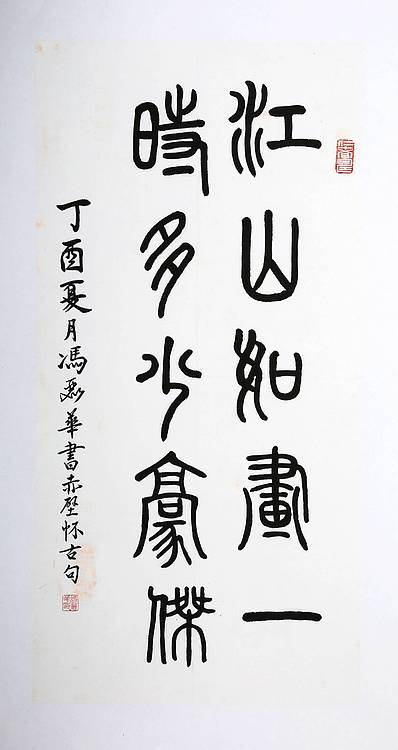 江山如畫一
時多少豪傑
丁酉夏月馮磊華書赤壁懷古句